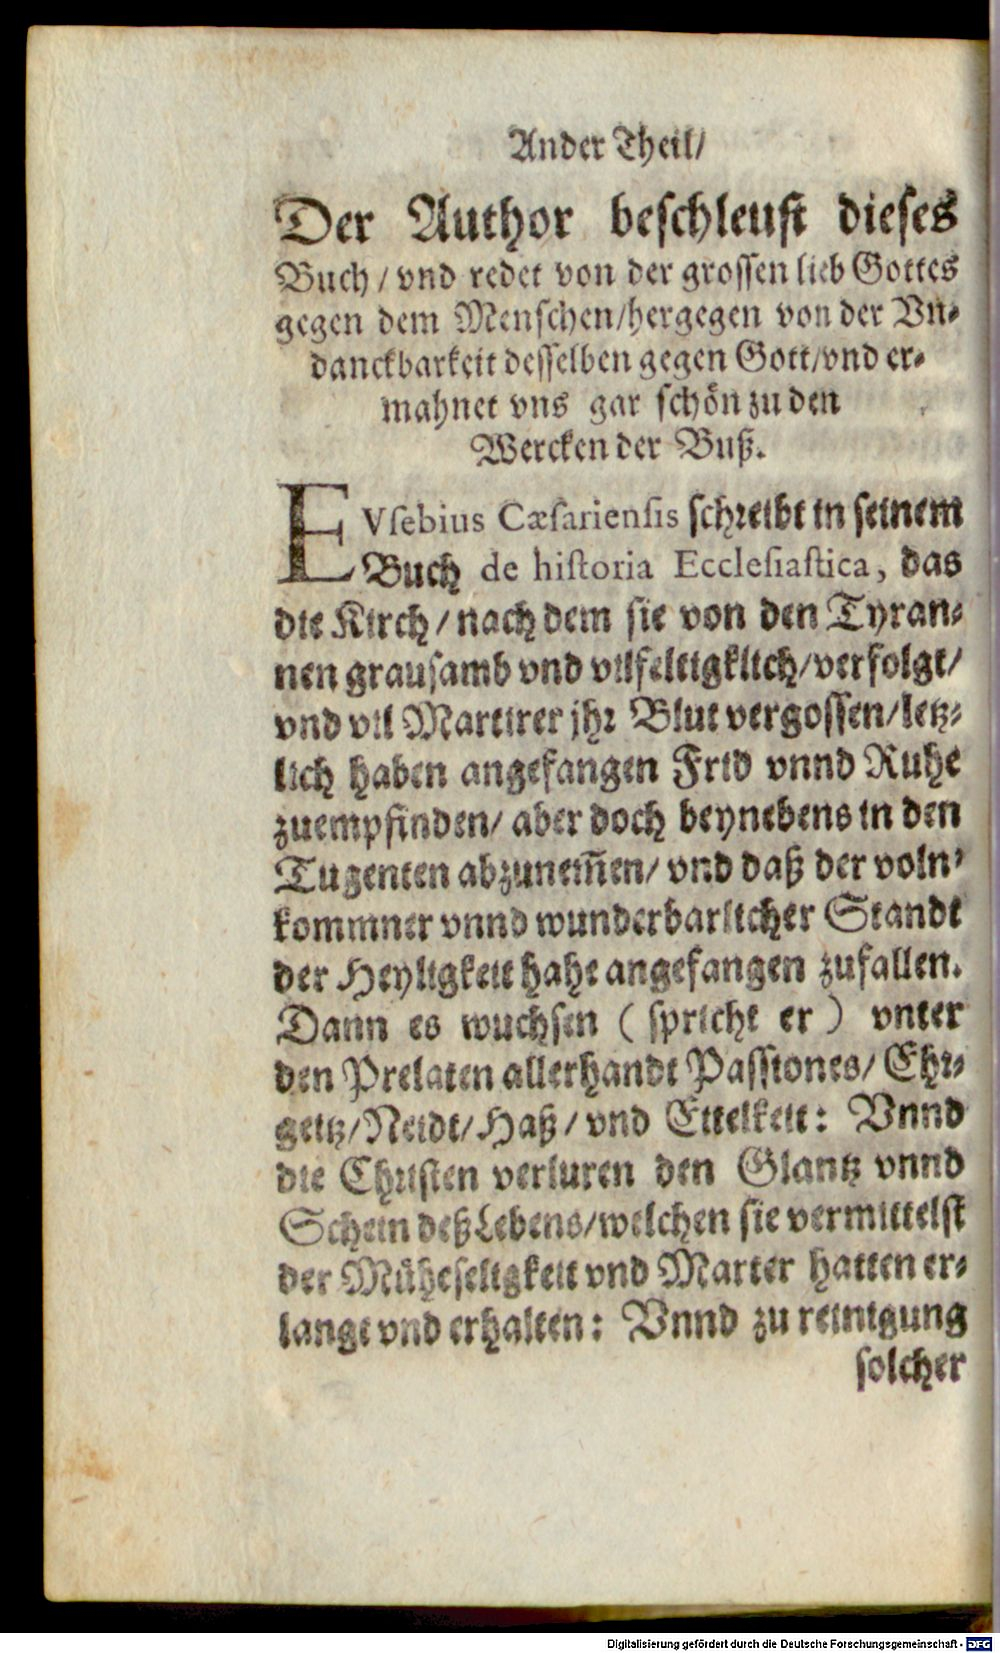 Ander Theil/
Der Author beschleust dieses
Buch / vnd redet von der grossen lieb Gottes
gegen dem Menschen/hergegen von der Vn-
danckbarkeit desselben gegen Gott/vnd er-
mahnet vns gar schön zu den
Wercken der Buß.
EVsebius Cæsariensis schreibt in seinem
Buch de historia Ecclesiastica, das
die Kirch / nach dem sie von den Tyran-
nen grausamb vnd vilfeltigklich/verfolgt/
vnd vil Martirer jhr Blut vergossen/letz-
lich haben angefangen Frid vnnd Ruhe
zuempfinden/ aber doch beynebens in den
Tugenten abzunem̃en/ vnd daß der voln-
kommner vnnd wunderbarlicher Standt
der Heyligkeit hahe angefangen zufallen.
Dann es wuchsen ( spricht er ) vnter
den Prelaten allerhandt Passiones/ Ehr-
geitz/Neidt/Haß / vnd Eitelkeit: Vnnd
die Christen verluren den Glantz vnnd
Schein deß Lebens/welchen sie vermittelst
der Müheseligkeit vnd Marter hatten er-
langt vnd erhalten: Vnnd zu reinigung
solcher
Digitalisierung gefördert durch die Deutsche Forschungsgemeinschaft - DFG